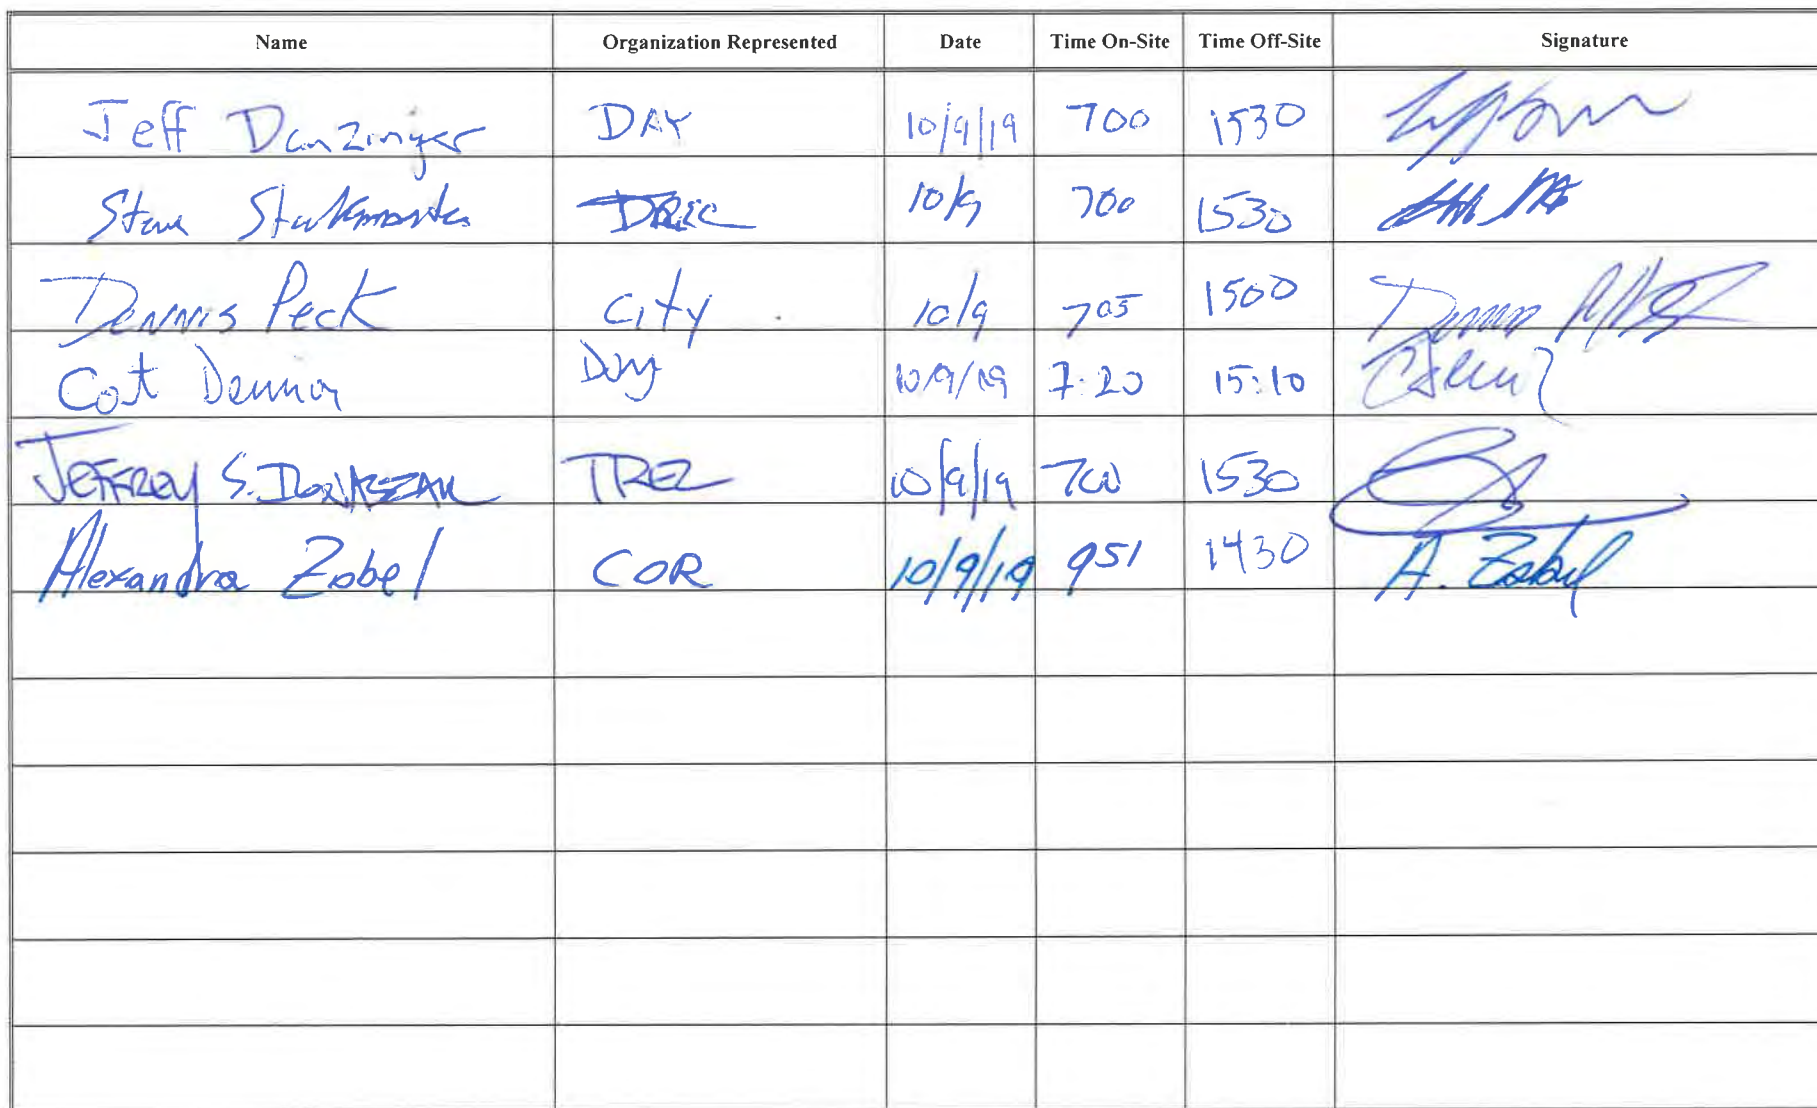 Name Organization Represented Date Time On-Site Time Off-Site Signature
Jeff Danzinger DAY 10/9/19 700 1530
Steve 10/9 700 1530
Dennis Peck City 10/9 705 1500
Day 10/9/19 7:20 15:10
Jeffrey S. TREC 10/9/19 700 1530
Alexandra Zobel COR 10/9/19 951 1430 A. Zobel